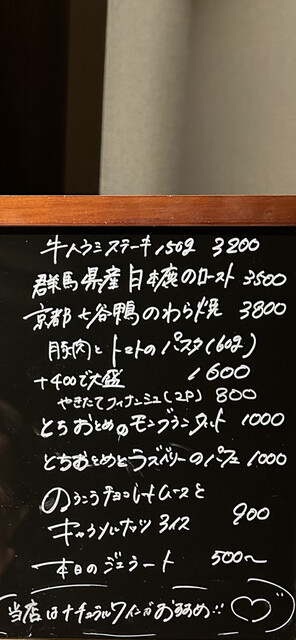 牛ハラミステーキ 150g 3200
群馬県産 日本鹿のロースト 3500
京都七谷鴨のわら焼 3800
豚肉とトマトのパスタ(160g)
+400で大盛 1600
やきたてフィナンシェ(2P) 800
とちおとめのモンブランタルト 1000
とちおとめとラズベリーのパフェ 1000
のうこうチョコレートムースと
キャラメルナッツアイス 900
本日のジェラート 500〜
当店はナチュラルワインがおすすめ‥♡